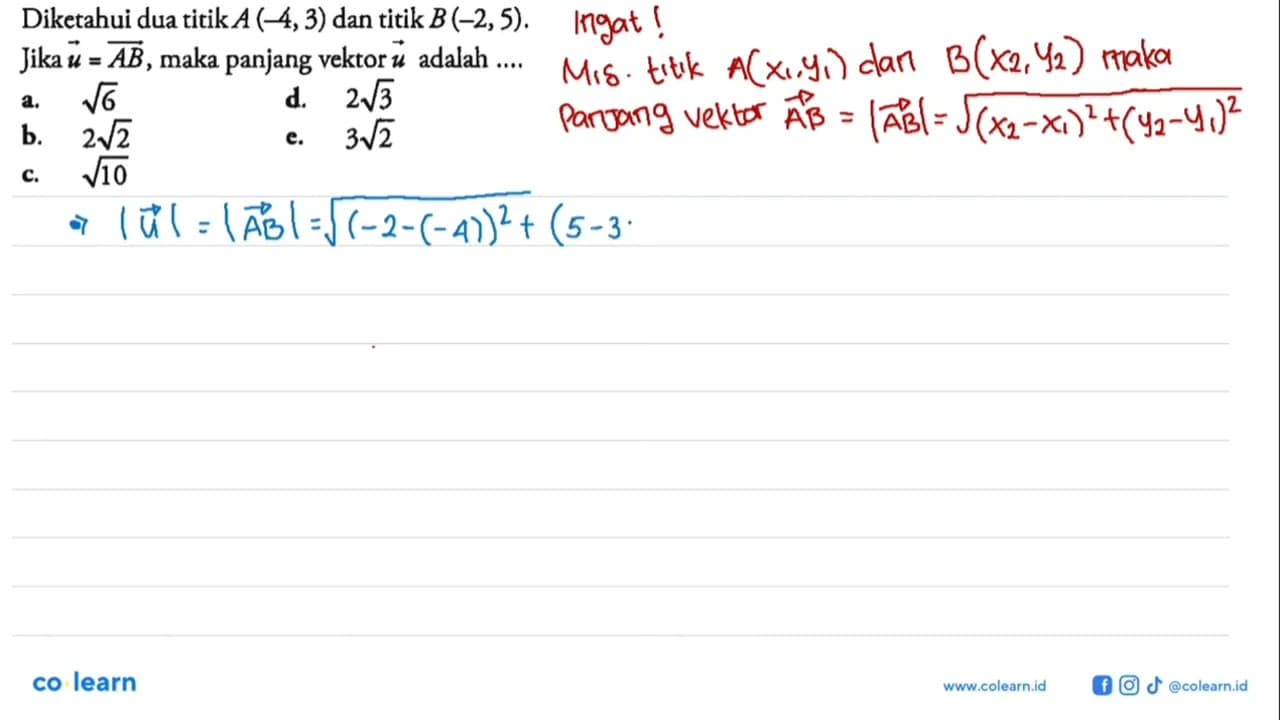 Diketahui dua titik A (–4, 3) dan titik B (–2, 5).
Jika u⃗ = AB⃗, maka panjang vektor u⃗ adalah ....
a. √6
b. 2√2
c. √10
d. 2√3
e. 3√2
Ingat !
Mis. titik A(x₁,y₁) dan B(x₂,y₂) maka
Panjang vektor AB⃗ = |AB⃗| = √((x₂-x₁)²+(y₂-y₁)²)
→ |u⃗| = |AB⃗| = √(-2-(-4))² + (5-3
co learn
www.colearn.id
@colearn.id